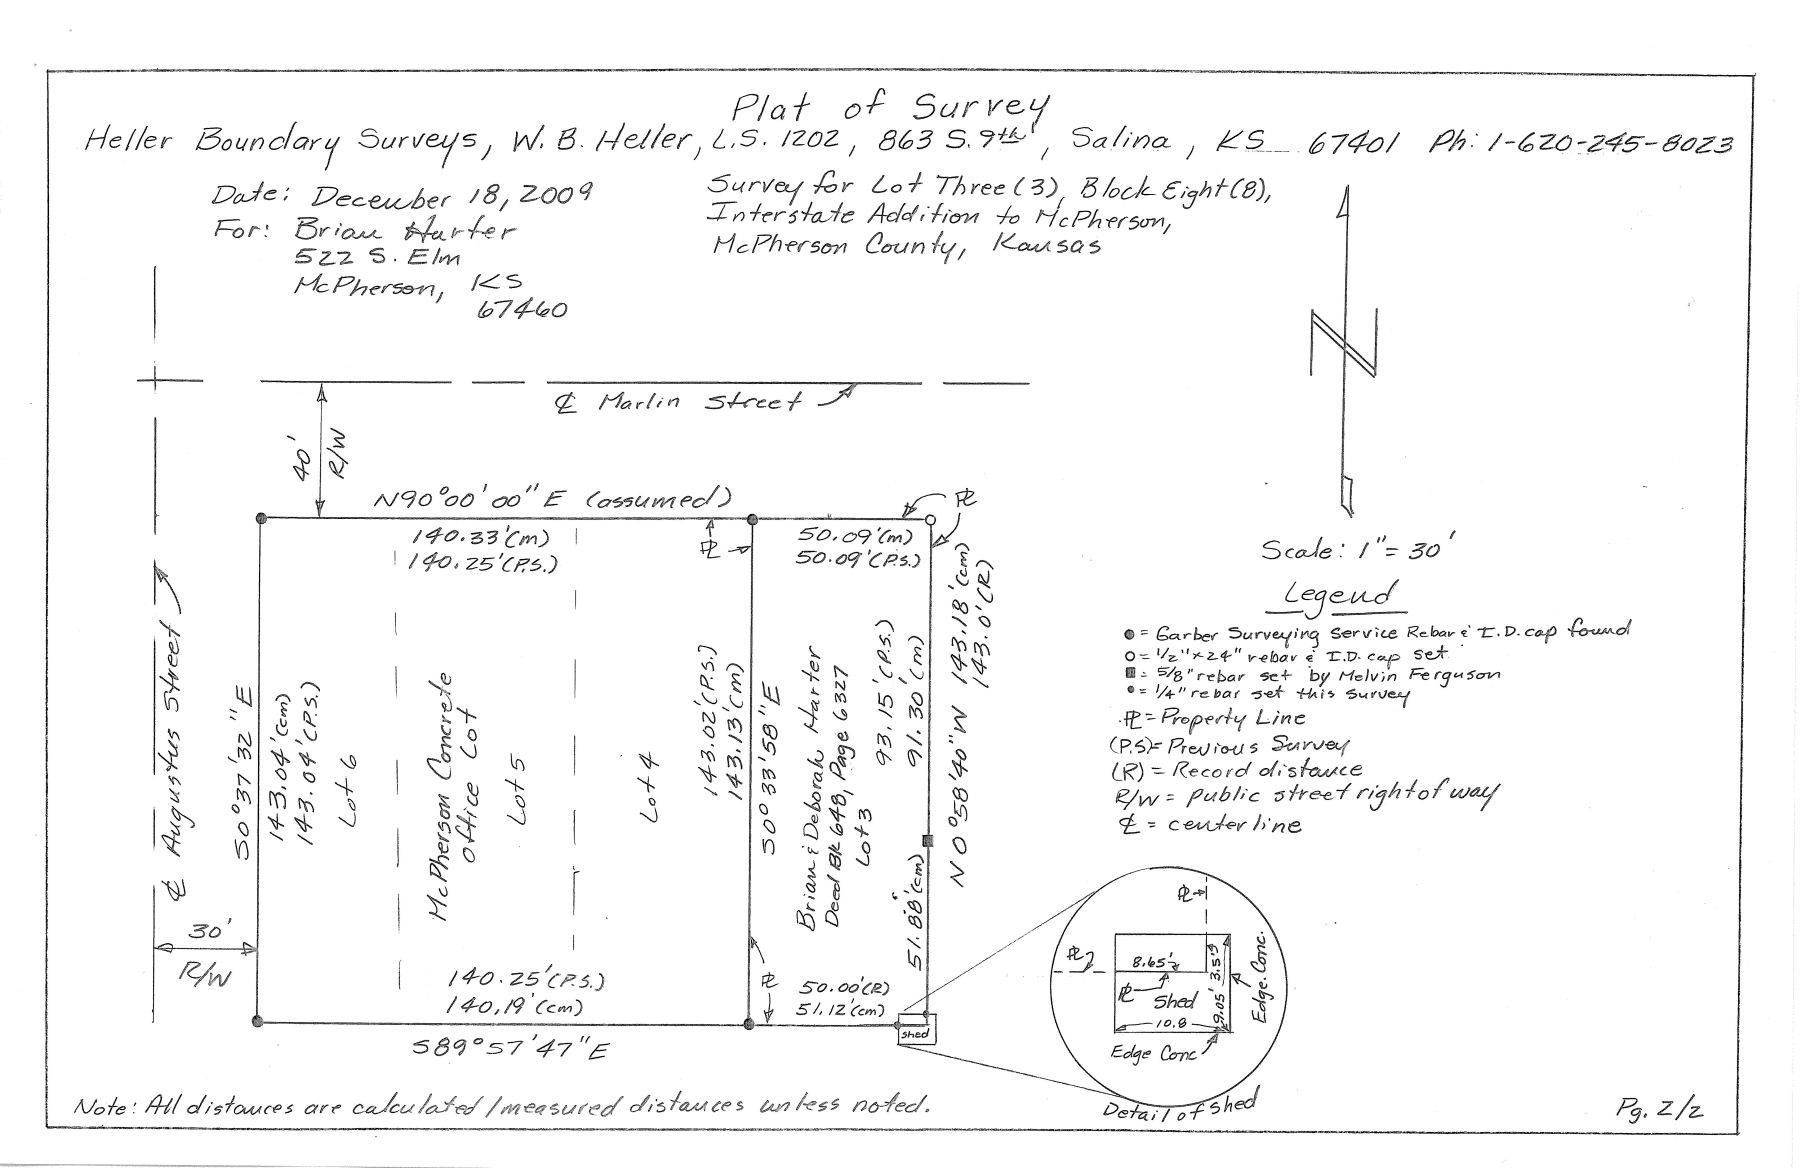 Plat of Survey
Heller Boundary Surveys, W. B. Heller, L.S. 1202, 863 S. 9th, Salina, KS 67401 Ph: 1-620-245-8023
Date: December 18, 2009
For: Brian Harter
522 S. Elm
McPherson, KS
67460
Survey for Lot Three (3), Block Eight (8),
Interstate Addition to McPherson,
McPherson County, Kansas
N
℄ Marlin Street
40'
R/W
N90°00'00"E (assumed)
140.33'(m)
140.25'(P.S.)
PL
50.09'(m)
50.09'(P.S.)
PL
℄ Augustus Street
S0°37'32"E
143.04'(cm)
143.04'(P.S.)
Lot 6
McPherson Concrete
Office Lot
Lot 5
Lot 4
143.02'(P.S.)
143.13'(m)
S0°33'58"E
Brian & Deborah Harter
Deed Bk 648, Page 6327
Lot 3
93.15'(P.S.)
91.30'(m)
51.88'(cm)
N0°58'40"W
143.18'(cm)
143.0'(R)
30'
R/W
140.25'(P.S.)
140.19'(cm)
PL
50.00'(R)
51.12'(cm)
Shed
S89°57'47"E
Scale: 1"=30'
Legend
● = Garber Surveying Service Rebar & I.D. cap found
○ = 1/2"x24" rebar & I.D. cap set
■ = 5/8" rebar set by Melvin Ferguson
● = 1/4" rebar set this survey
PL = Property Line
(P.S)= Previous Survey
(R) = Record distance
R/W = public street right of way
℄ = centerline
PL
PL
8.65'±
3.5'±
PL
Shed
9.05'
10.8
Edge Conc.
Edge Conc
Detail of Shed
Note: All distances are calculated/measured distances unless noted.
Pg. 2/2